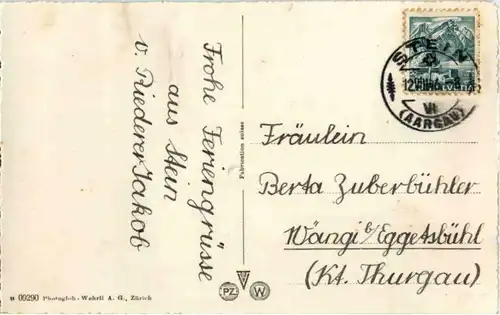 Frohe Feriengrüsse
aus Stein
v. Riederer Jakob
Fabrication suisse
STEIN
VI
(AARGAU)
Fräulein
Berta Zuberbühler
Wängi b/Eggetsbühl
(Kt. Thurgau)
PZ W
09290 Photoglob-Wehrli A. G., Zürich